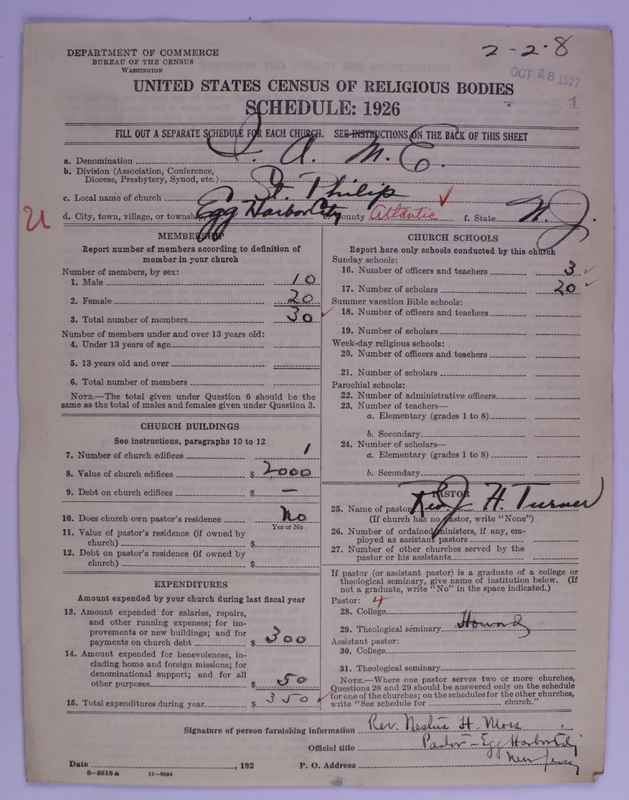 DEPARTMENT OF COMMERCE
BUREAU OF THE CENSUS
WASHINGTON
2-2-8
OCT 28 1927
1
UNITED STATES CENSUS OF RELIGIOUS BODIES
SCHEDULE: 1926
FILL OUT A SEPARATE SCHEDULE FOR EACH CHURCH. SEE INSTRUCTIONS ON THE BACK OF THIS SHEET
a. Denomination A. M. E.
b. Division (Association, Conference, Diocese, Presbytery, Synod, etc.)
c. Local name of church St. Philip
d. City, town, village, or township Egg Harbor City County Atlantic f. State N. J.
MEMBERSHIP
Report number of members according to definition of
member in your church
Number of members, by sex:
1. Male 10
2. Female 20
3. Total number of members 30
Number of members under and over 13 years old:
4. Under 13 years of age
5. 13 years old and over
6. Total number of members
NOTE.—The total given under Question 6 should be the
same as the total of males and females given under Question 3.
CHURCH BUILDINGS
See instructions, paragraphs 10 to 12
7. Number of church edifices 1
8. Value of church edifices $ 2000
9. Debt on church edifices $ —
10. Does church own pastor's residence No
Yes or No
11. Value of pastor's residence (if owned by
church) $
12. Debt on pastor's residence (if owned by
church) $
EXPENDITURES
Amount expended by your church during last fiscal year
13. Amount expended for salaries, repairs,
and other running expenses; for im-
provements or new buildings; and for
payments on church debt $ 300
14. Amount expended for benevolences, in-
cluding home and foreign missions; for
denominational support; and for all
other purposes $ 50
15. Total expenditures during year $ 350
CHURCH SCHOOLS
Report here only schools conducted by this church
Sunday schools:
16. Number of officers and teachers 3
17. Number of scholars 20
Summer vacation Bible schools:
18. Number of officers and teachers
19. Number of scholars
Week-day religious schools:
20. Number of officers and teachers
21. Number of scholars
Parochial schools:
22. Number of administrative officers
23. Number of teachers—
a. Elementary (grades 1 to 8)
b. Secondary
24. Number of scholars—
a. Elementary (grades 1 to 8)
b. Secondary
PASTOR
25. Name of pastor Rev. J. H. Turner
(If church has no pastor, write "None")
26. Number of ordained ministers, if any, em-
ployed as assistant pastors
27. Number of other churches served by the
pastor or his assistants
If pastor (or assistant pastor) is a graduate of a college or
theological seminary, give name of institution below. (If
not a graduate, write "No" in the space indicated.)
Pastor: 4
28. College
29. Theological seminary Howard
Assistant pastor:
30. College
31. Theological seminary
NOTE.—Where one pastor serves two or more churches,
Questions 28 and 29 should be answered only on the schedule
for one of the churches; on the schedules for the other churches,
write "See schedule for church."
Signature of person furnishing information Rev. H. Moss
Official title Pastor - Egg Harbor City
New Jersey
Date , 192 P. O. Address
8—5518a 11—9564